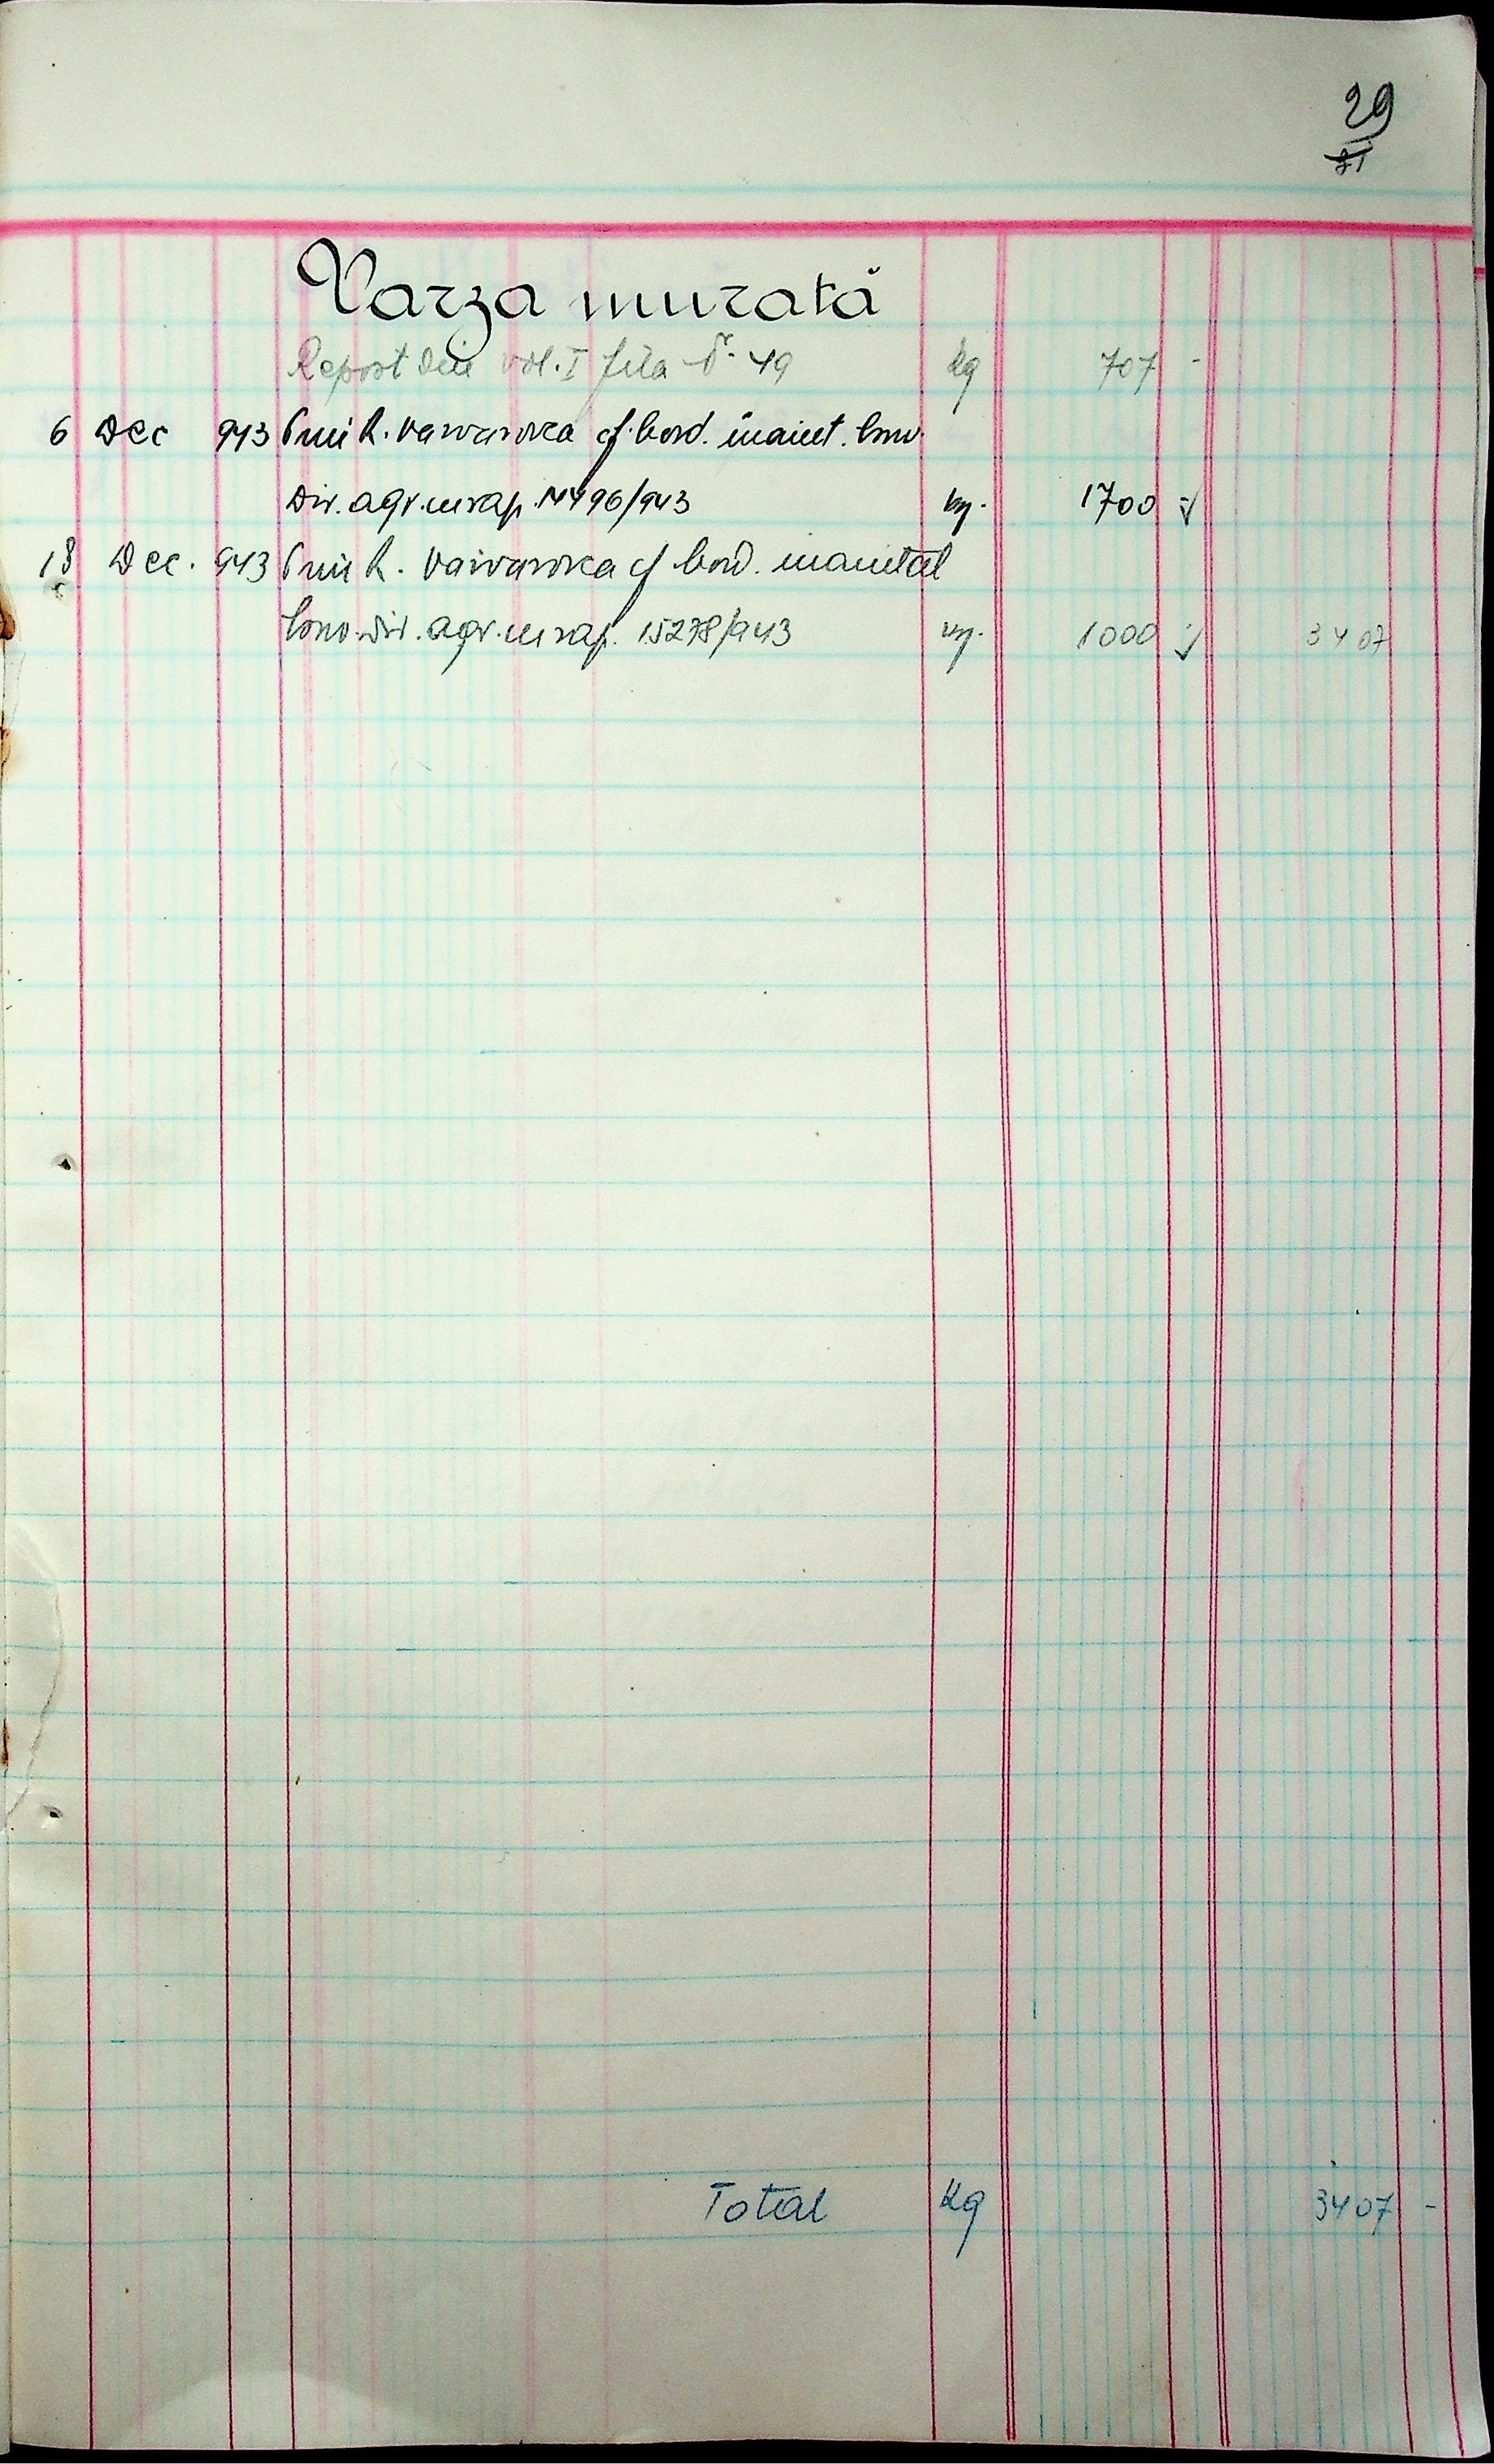 29
31
Varza murată
Report din vol. I fila No. 49 kg 707 -
6 Dec 943 Prin R. Varvarovca cf. bord. inaint.
Dir. agr. cu rap. 14496/943 kg. 1700
18 Dec. 943 Prin R. Varvarovca cf bord. inaintat
Dir. agr. cu rap. 15278/943 kg. 1000 3407
Total Kg 3407 -